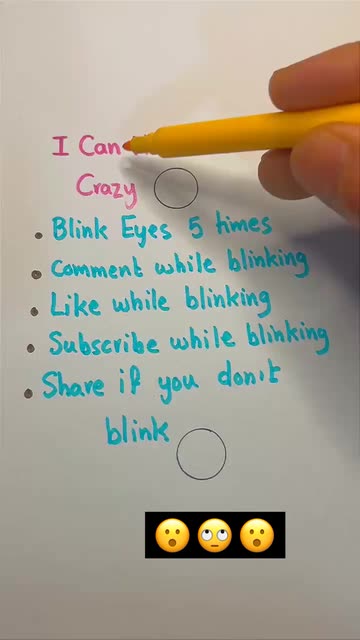 I Can
Crazy
• Blink Eyes 5 times
• Comment while blinking
• Like while blinking
• Subscribe while blinking
• Share if you don't
blink